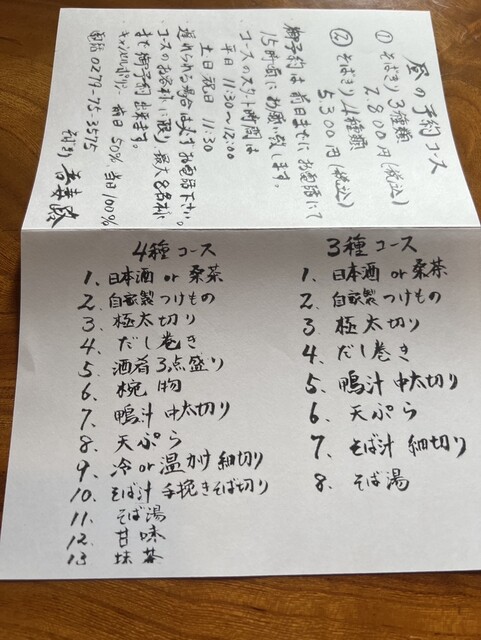 昼の予約コース
① そばきり3種類
2.800円(税込)
② そばぎり4種類
5.300円(税込)
御予約は前日までにお電話にて
15時前にお願い致します。
・コースのスタート時間は
平日 11:30~12:00
土日祝日 11:30
遅れられる場合は必ずお電話下さい。
・コースのお客様に限り最大8名様に
まで御予約出来ます。
キャンセルポリシー 前日50% 当日100%
電話 0279-76-3575
そばきり
3種コース
1. 日本酒 or 桑茶
2. 自家製つけもの
3. 極太切り
4. だし巻き
5. 鴨汁 中太切り
6. 天ぷら
7. そば汁 細切り
8. そば湯
4種コース
1. 日本酒 or 桑茶
2. 自家製つけもの
3. 極太切り
4. だし巻き
5. 酒肴3点盛り
6. 椀物
7. 鴨汁 中太切り
8. 天ぷら
9. 冷 or 温かけ 細切り
10. そば汁 手挽きそば切り
11. そば湯
12. 甘味
13 抹茶